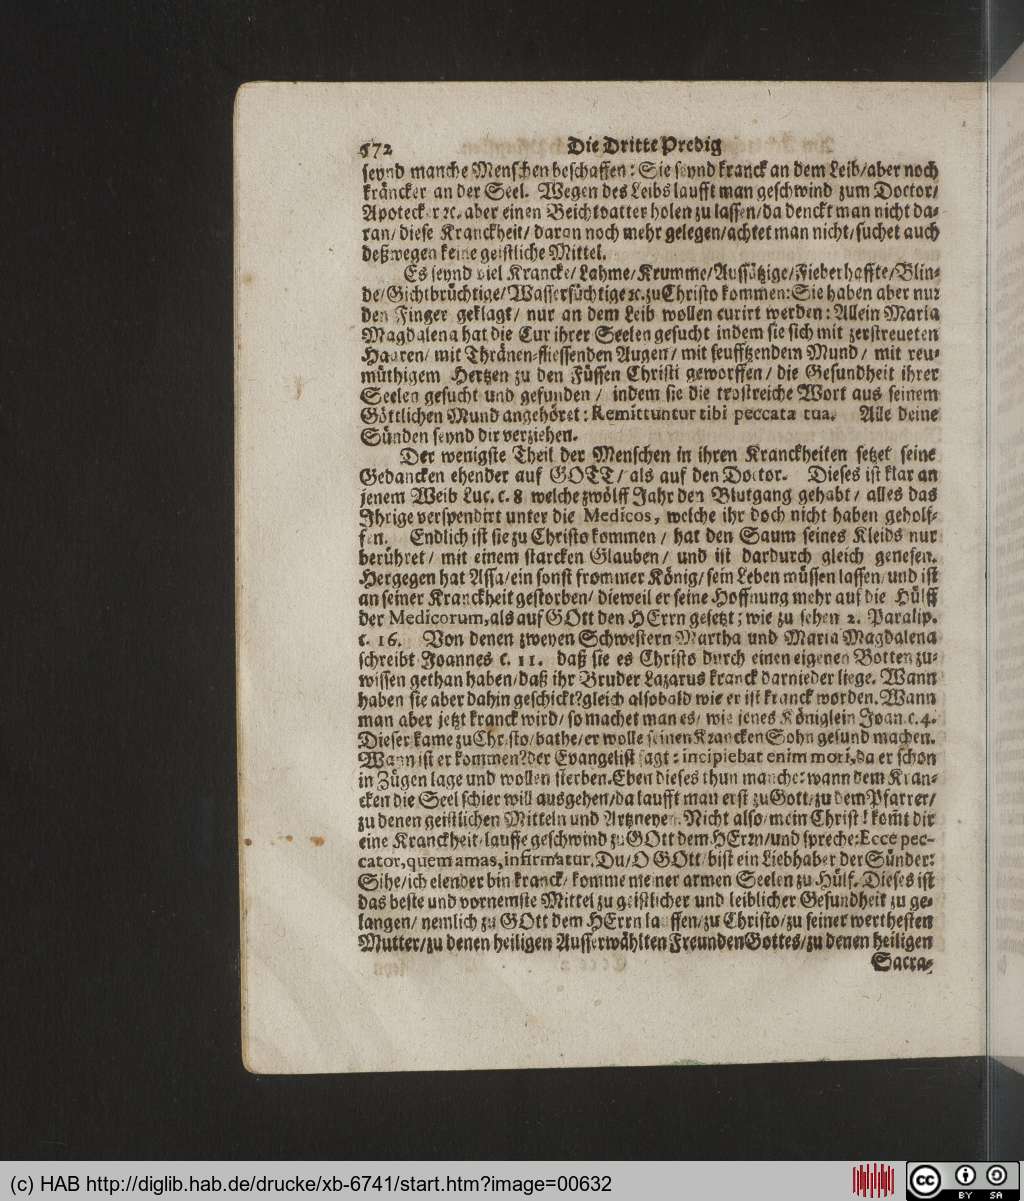 572 Die Dritte Predig
seynd manche Menschen beschaffen: Sie seynd kranck an dem Leib/aber noch
kräncker an der Seel. Wegen des Leibs laufft man geschwind zum Doctor/
Apotecker ꝛc. aber einen Beichtvatter holen zu lassen/da denckt man nicht da-
ran/ diese Kranckheit/ daran noch mehr gelegen/achtet man nicht/suchet auch
deßwegen keine geistliche Mittel.
Es seynd viel Krancke/ Lahme/Krumme/Aussätzige/Fieberhaffte/Blin-
de/Gichtbrüchtige/Wassersüchtige ꝛc. zu Christo kommen: Sie haben aber nur
den Finger geklagt/ nur an dem Leib wollen curirt werden: Allein Maria
Magdalena hat die Cur ihrer Seelen gesucht indem sie sich mit zerstreueten
Haaren/ mit Thränen-fliessenden Augen/ mit seufftzendem Mund/ mit reu-
müthigem Hertzen zu den Füssen Christi geworffen/ die Gesundheit ihrer
Seelen gesucht und gefunden/ indem sie die trostreiche Wort aus seinem
Göttlichen Mund angehöret: Remittuntur tibi peccata tua. Alle deine
Sünden seynd dir verziehen.
Der wenigste Theil der Menschen in ihren Kranckheiten setzet seine
Gedancken ehender auf GOTT/ als auf den Doctor. Dieses ist klar an
jenem Weib Luc. c. 8 welche zwölff Jahr den Blutgang gehabt/ alles das
Ihrige verspendirt unter die Medicos, welche ihr doch nicht haben geholf-
fen. Endlich ist sie zu Christo kommen/ hat den Saum seines Kleids nur
berühret/ mit einem starcken Glauben/ und ist dardurch gleich genesen.
Hergegen hat Assa/ein sonst frommer König/sein Leben müssen lassen/und ist
an seiner Kranckheit gestorben/ dieweil er seine Hoffnung mehr auf die Hülff
der Medicorum, als auf GOtt den HErrn gesetzt; wie zu sehen 2. Paralip.
c. 16. Von denen zweyen Schwestern Martha und Maria Magdalena
schreibt Joannes c. 11. daß sie es Christo durch einen eigenen Botten zu-
wissen gethan haben/daß ihr Bruder Lazarus kranck darnieder liege. Wann
haben sie aber dahin geschickt? gleich alsobald wie er ist kranck worden. Wann
man aber jetzt kranck wird/ so machet man es/ wie jenes Königlein Joan. c. 4.
Dieser kame zu Christo/bathe/er wolle seinen Krancken Sohn gesund machen.
Wann ist er kommen? der Evangelist sagt: incipiebat enim mori, da er schon
in Zügen lage und wollen sterben. Eben dieses thun manche: wann dem Kran-
cken die Seel schier will ausgehen/da laufft man erst zu Gott/zu dem Pfarrer/
zu denen geistlichen Mitteln und Artzneyen. Nicht also/ mein Christ! kom̃t dir
eine Kranckheit/lauffe geschwind zu GOtt dem HErrn/und spreche: Ecce pec-
cator, quem amas, infirmatur, Du/O GOtt/bist ein Liebhaber der Sünder:
Sihe/ich elender bin kranck/ komme meiner armen Seelen zu Hülf. Dieses ist
das beste und vornemste Mittel zu geistlicher und leiblicher Gesundheit zu ge-
langen/ nemlich zu GOtt dem HErrn lauffen/zu Christo/zu seiner werthesten
Mutter/zu denen heiligen Ausserwählten Freunden Gottes/zu denen heiligen
Sacra-
(c) HAB http://diglib.hab.de/drucke/xb-6741/start.htm?image=00632
cc BY SA